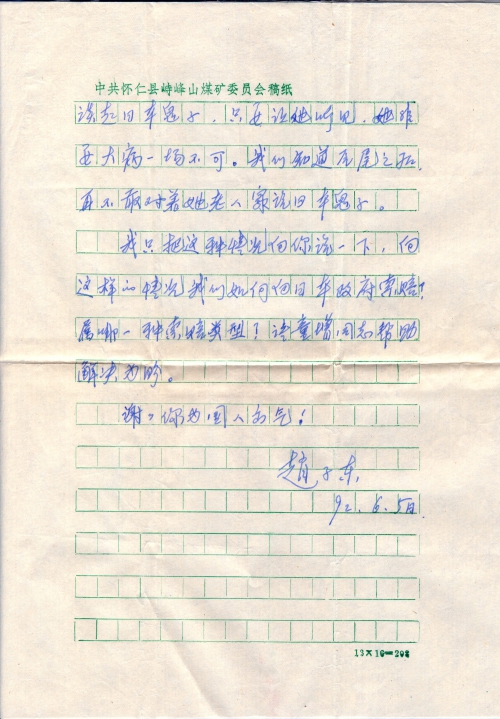 中共怀仁县峙峰山煤矿委员会稿纸
谈起日本鬼子，只要让她听见，她非
要大病一场不可。我们知道尾之后，
再不敢对着她老人家说日本鬼子。
我只把这种情况向你谈一下，向
这样的情况我们如何向日本政府索赔？
属哪一种索赔类型？请童增同志帮助
解决为盼。
谢谢你为国人而气！
赵子东
92.6.5日.
13×16=208